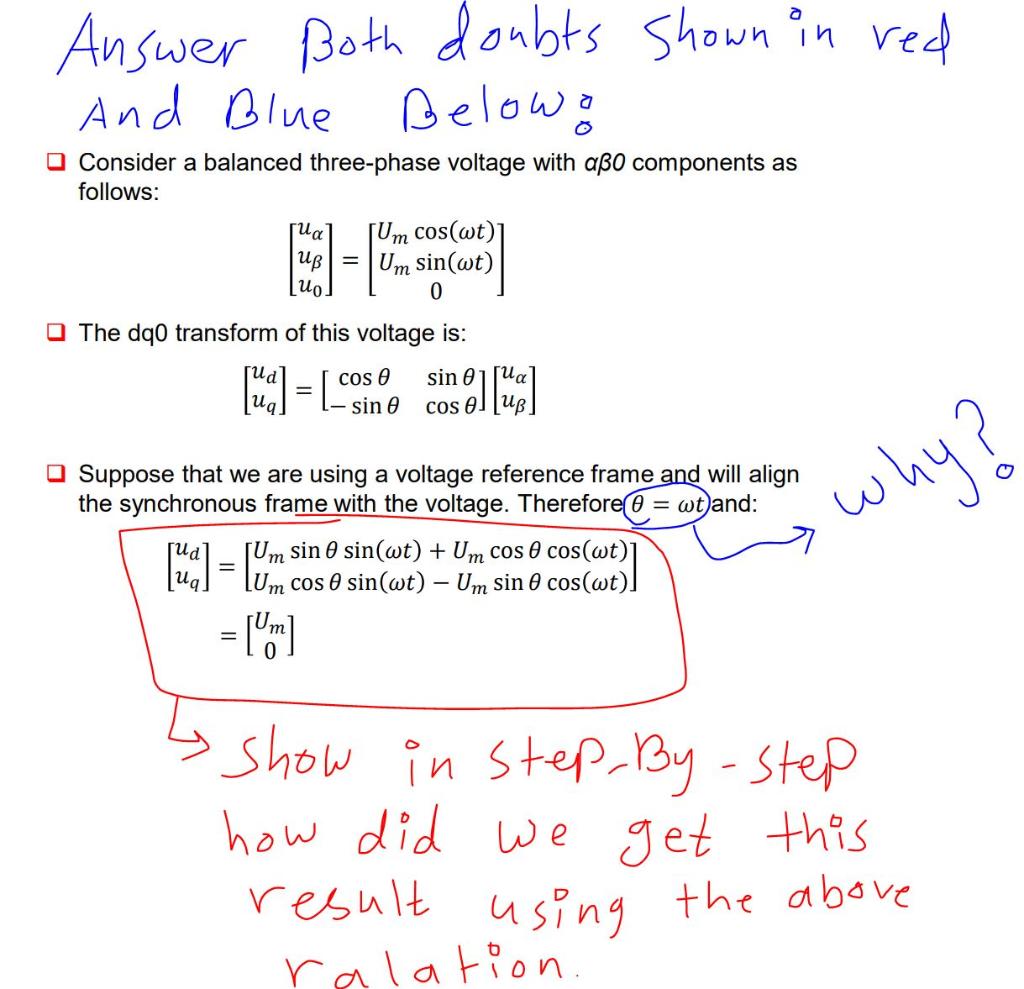 Answer Both doubts Shown in red
And Blue Below:
❑ Consider a balanced three-phase voltage with αβ0 components as
follows:
[u_α; u_β; u_0] = [U_m cos(ωt); U_m sin(ωt); 0]
❑ The dq0 transform of this voltage is:
[u_d; u_q] = [cos θ sin θ; − sin θ cos θ] [u_α; u_β]
why?
❑ Suppose that we are using a voltage reference frame and will align
the synchronous frame with the voltage. Therefore θ = ωt and:
[u_d; u_q] = [U_m sin θ sin(ωt) + U_m cos θ cos(ωt); U_m cos θ sin(ωt) − U_m sin θ cos(ωt)]
= [U_m; 0]
Show in step-By-step
how did we get this
result using the above
ralation.